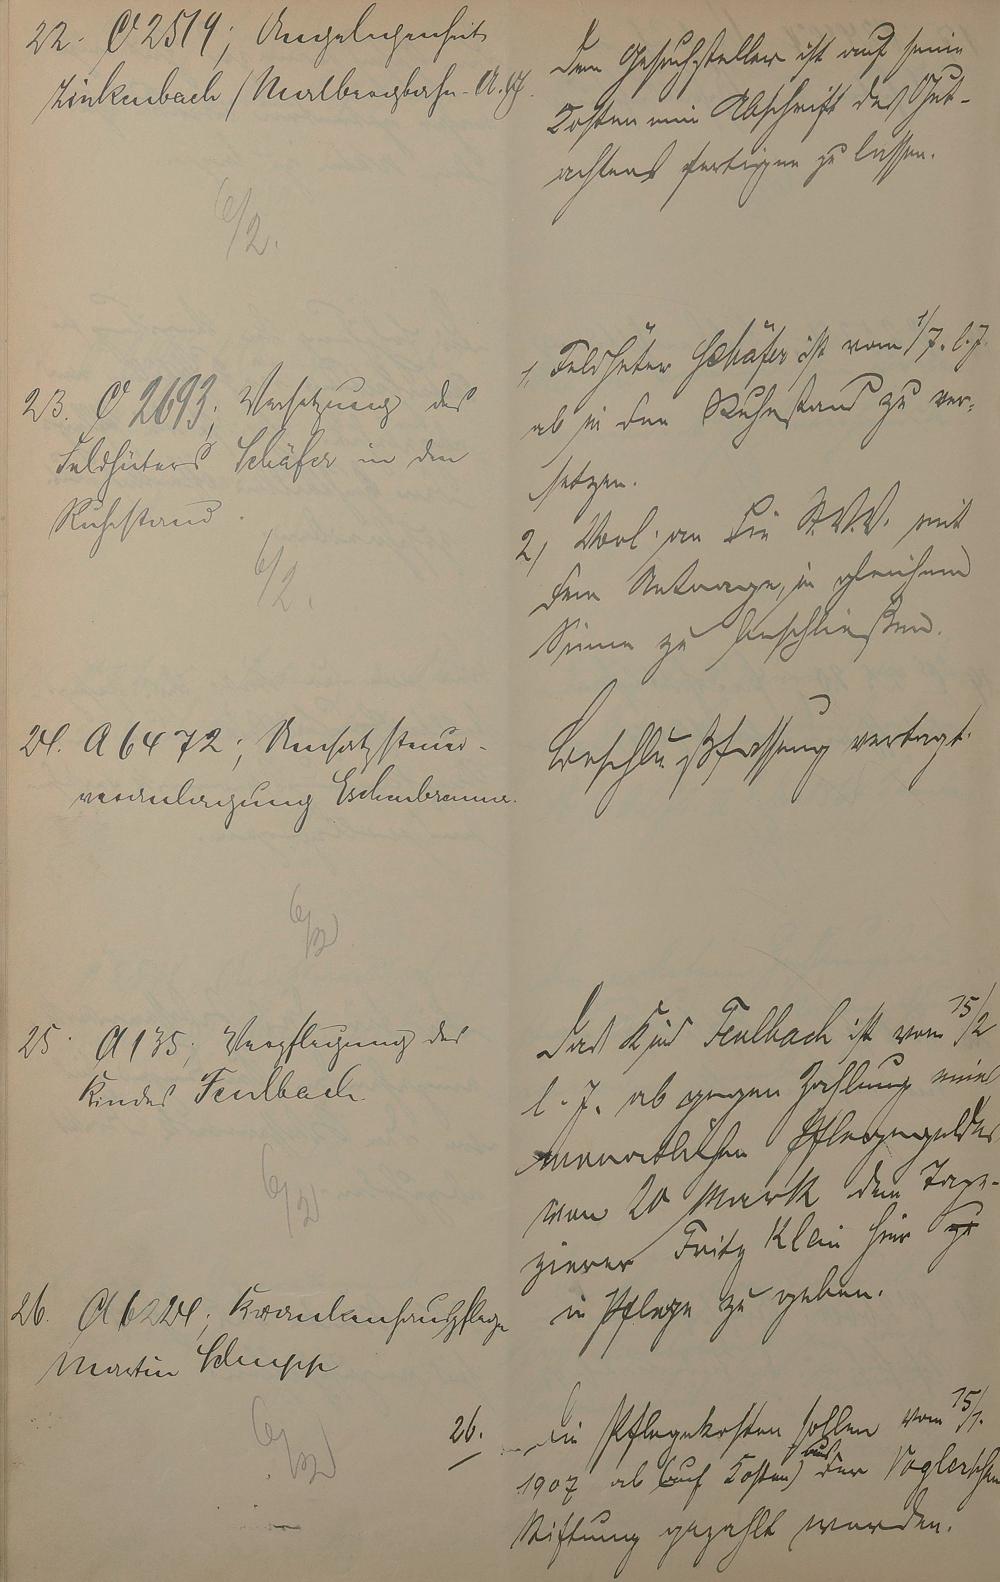 22. O 2519; Angelegenheit
Zinkenbach / Marlbergbahn-A.G.
Dem Gesuchsteller ist auf seine
Kosten eine Abschrift des Gut-
achtens fertigen zu lassen.
6/2.
23. O 2693; Versetzung des
Feldhüters Schäfer in den
Ruhestand.
1, Feldhüter Schäfer ist vom 1/7. l. J.
ab in den Ruhestand zu ver-
setzen.
2, Vorl. an die St.V.V. mit
dem Antrage, in gleichem
Sinne zu beschließen.
6/2.
24. A 6472; Umsatzsteuer-
veranlagung Eschenbrenner.
Beschlußfassung vertagt.
6/2
25. A 135; Verpflegung des
Kindes Feulbach.
Das Kind Feulbach ist vom 15/2
l. J. ab gegen Zahlung eines
monatlichen Pflegegeldes
von 20 Mark dem Tape-
zierer Fritz Klein hier zu
in Pflege zu geben.
6/2
26. A 6224; Krankenhauspflege
Martin Schupp
26. Die Pflegekosten sollen vom 15/1.
1907 ab (auf Kosten) aus der Voglerschen
Stiftung gezahlt werden.
6/2